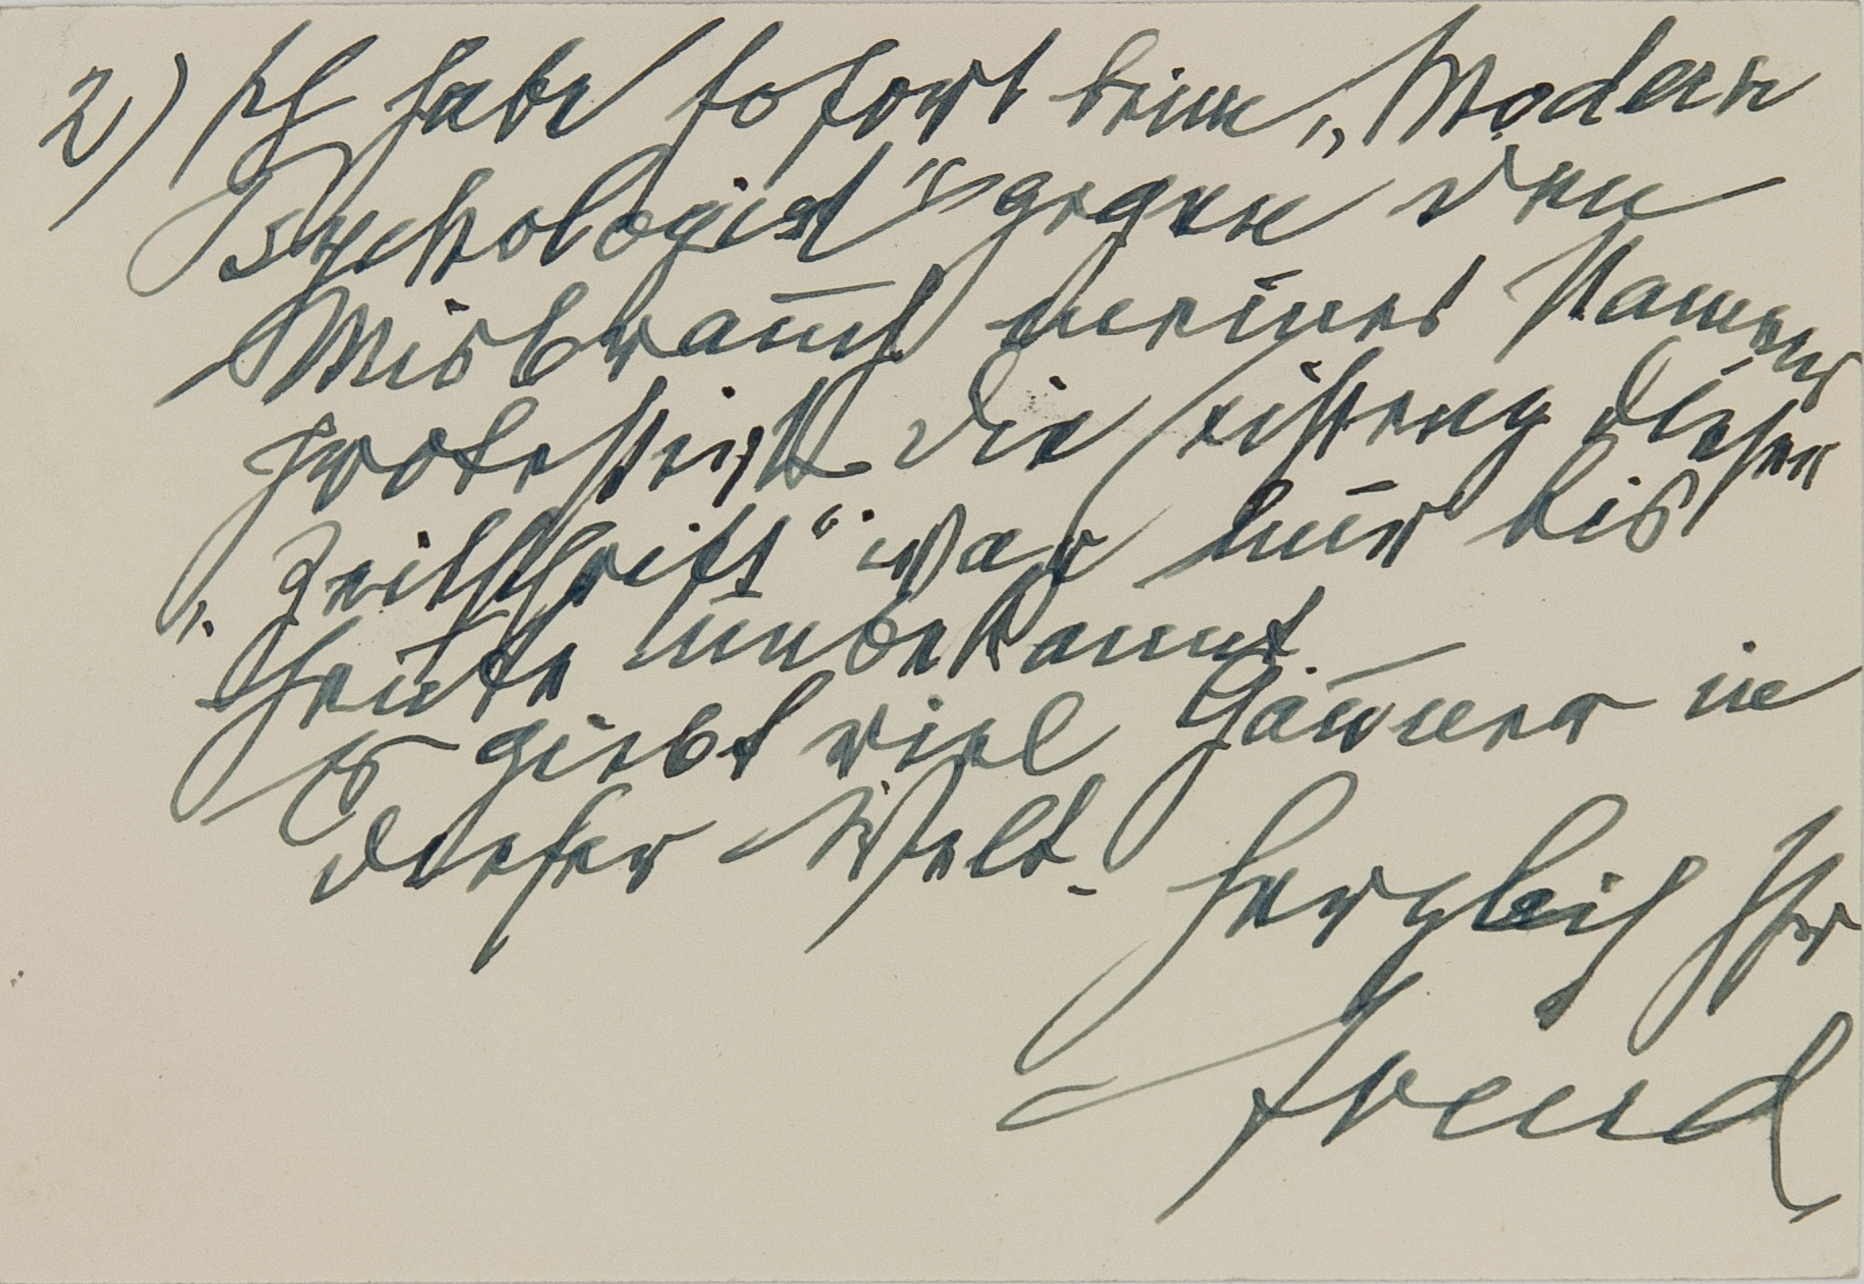 2) Ich habe sofort beim „Modern
Psychologist" gegen den
Misbrauch meines Namens
protestirt. Die Existenz dieser
„Zeitschrift" war mir bis
heute unbekannt.
Es giebt viel Gauner in
dieser Welt.
Herzlich Ihr
Freud